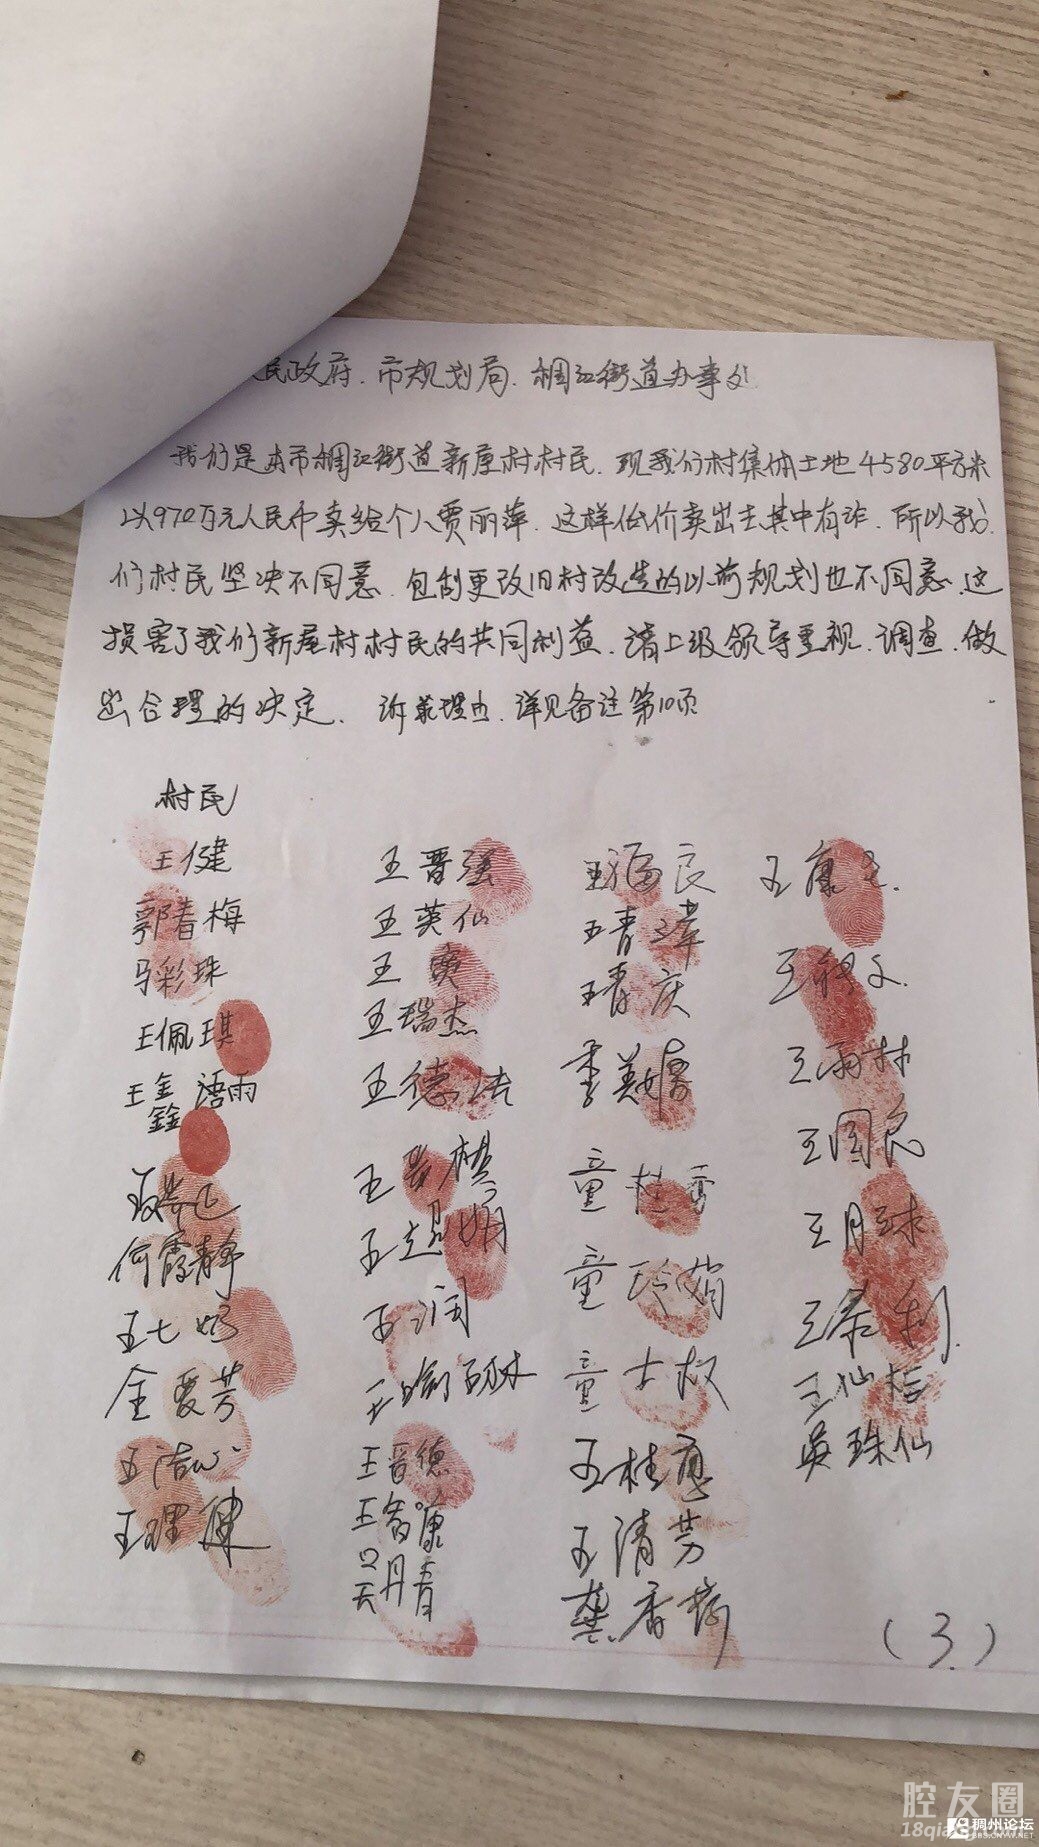 民政府.市规划局.稠江街道办事处
我们是本市稠江街道新屋村村民.现我们村集体土地4580平方米
以970万元人民币卖给个人贾丽萍.这样低价卖出去其中有诈.所以我
们村民坚决不同意.包刮更改旧村改造的以前规划也不同意.这
损害了我们新屋村村民的共同利益.请上级领导重视.调查.做
出合理的决定.诉求理由.详见备注第10页
村民
王健 王晋强 王福良 王康
郭春梅 王英仙 王青
马彩珠 王 王青庆 王 文
王佩琪 王瑞杰 季美 王雨林
王鑫语雨 王德法 童桂香 王国良
王 童玲娟 王月球
何霞静 王超娟 童士权 王希利
王七奶 王润 王桂 王仙桂
金爱芳 王 王清芳 吴珠仙
王洁心 王晋德 龚香
王理健 王智康
吴丹青
(3.)
腔友圈
18qiang
稠州论坛
BBS.CNYW.NET